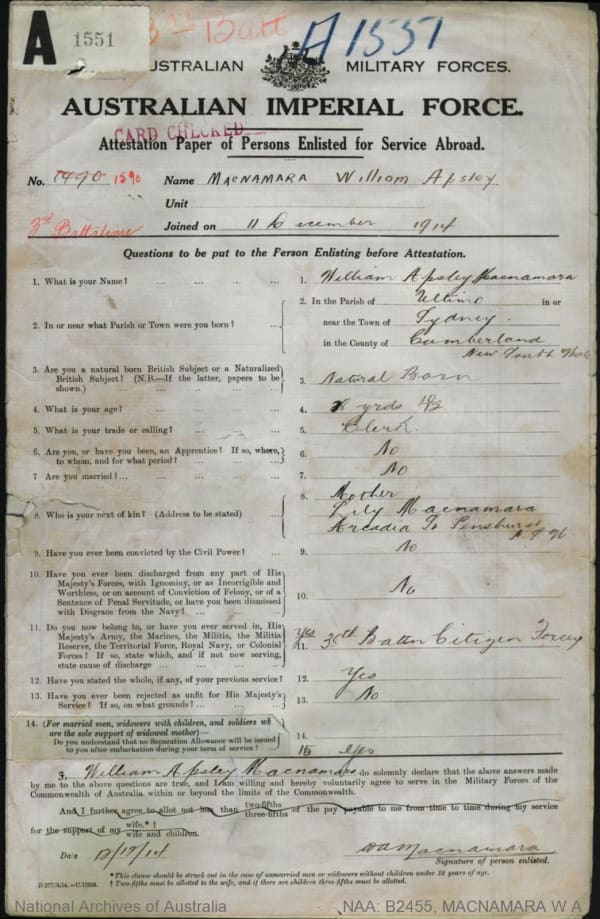 A 1551
3rd Batt A1551
AUSTRALIAN MILITARY FORCES.
AUSTRALIAN IMPERIAL FORCE.
CARD CHECKED
Attestation Paper of Persons Enlisted for Service Abroad.
No. 1490 1590 Name MACNAMARA William Apsley
Unit
3rd Battalion Joined on 11 December 1914
Questions to be put to the Person Enlisting before Attestation.
1. What is your Name? ... ... ... ... 1. William Apsley Macnamara
2. In or near what Parish or Town were you born? ... 2. In the Parish of Ultimo in or
near the Town of Sydney.
in the County of Cumberland
New South Wales
3. Are you a natural born British Subject or a Naturalized
British Subject? (N.B.—If the latter, papers to be
shown.) ... ... ... ... ... 3. Natural Born
4. What is your age? ... ... ... ... 4. yrds
5. What is your trade or calling? ... ... ... 5. Clerk
6. Are you, or have you been, an Apprentice? If so, where,
to whom, and for what period? ... ... ... 6. No
7. Are you married? ... ... ... ... 7. No
8. Who is your next of kin? (Address to be stated) ... 8. Mother
Lily Macnamara
Arcadia Penshurst
9. Have you ever been convicted by the Civil Power? ... 9. No
10. Have you ever been discharged from any part of His
Majesty's Forces, with Ignominy, or as Incorrigible and
Worthless, or on account of Conviction of Felony, or of a
Sentence of Penal Servitude, or have you been dismissed
with Disgrace from the Navy? ... ... ... 10. No
11. Do you now belong to, or have you ever served in, His
Majesty's Army, the Marines, the Militia, the Militia
Reserve, the Territorial Force, Royal Navy, or Colonial
Forces? If so, state which, and if not now serving,
state cause of discharge ... ... ... ... 11. Yes 38th Battn Citizen Forces
12. Have you stated the whole, if any, of your previous service? 12. Yes
13. Have you ever been rejected as unfit for His Majesty's
Service? If so, on what grounds? ... ... ... 13. No
14. (For married men, widowers with children, and soldiers who
are the sole support of widowed mother)—
Do you understand that no Separation Allowance will be issued
to you after embarkation during your term of service? 14.
15 Yes
3. William Apsley Macnamara do solemnly declare that the above answers made
by me to the above questions are true, and I am willing and hereby voluntarily agree to serve in the Military Forces of the
Commonwealth of Australia within or beyond the limits of the Commonwealth.
And I further agree to allot not less than two-fifths three-fifths of the pay payable to me from time to time during my service
for the support of my wife.*† wife and children.
Date W A Macnamara
Signature of person enlisted.
*This clause should be struck out in the case of unmarried men or widowers without children under 18 years of age.
†Two-fifths must be allotted to the wife, and if there are children three-fifths must be allotted.
D.277/9.14.—C.12398.
National Archives of Australia NAA: B2455, MACNAMARA W A